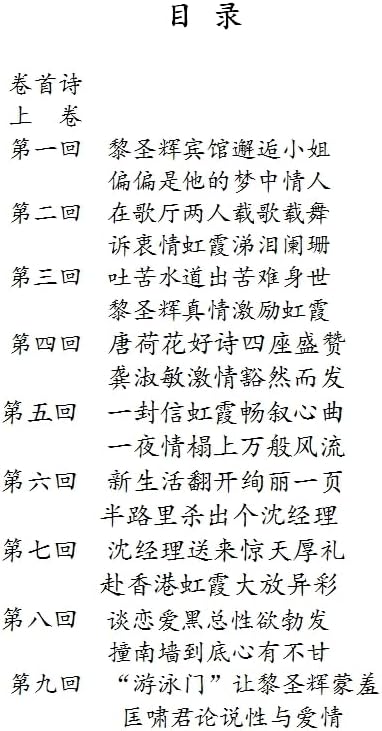 目 录
卷首诗
上 卷
第一回 黎圣辉宾馆邂逅小姐
偏偏是他的梦中情人
第二回 在歌厅两人载歌载舞
诉衷情虹霞涕泪阑珊
第三回 吐苦水道出苦难身世
黎圣辉真情激励虹霞
第四回 唐荷花好诗四座盛赞
龚淑敏激情豁然而发
第五回 一封信虹霞畅叙心曲
一夜情榻上万般风流
第六回 新生活翻开绚丽一页
半路里杀出个沈经理
第七回 沈经理送来惊天厚礼
赴香港虹霞大放异彩
第八回 谈恋爱黑总性欲勃发
撞南墙到底心有不甘
第九回 “游泳门”让黎圣辉蒙羞
匡啸君论说性与爱情